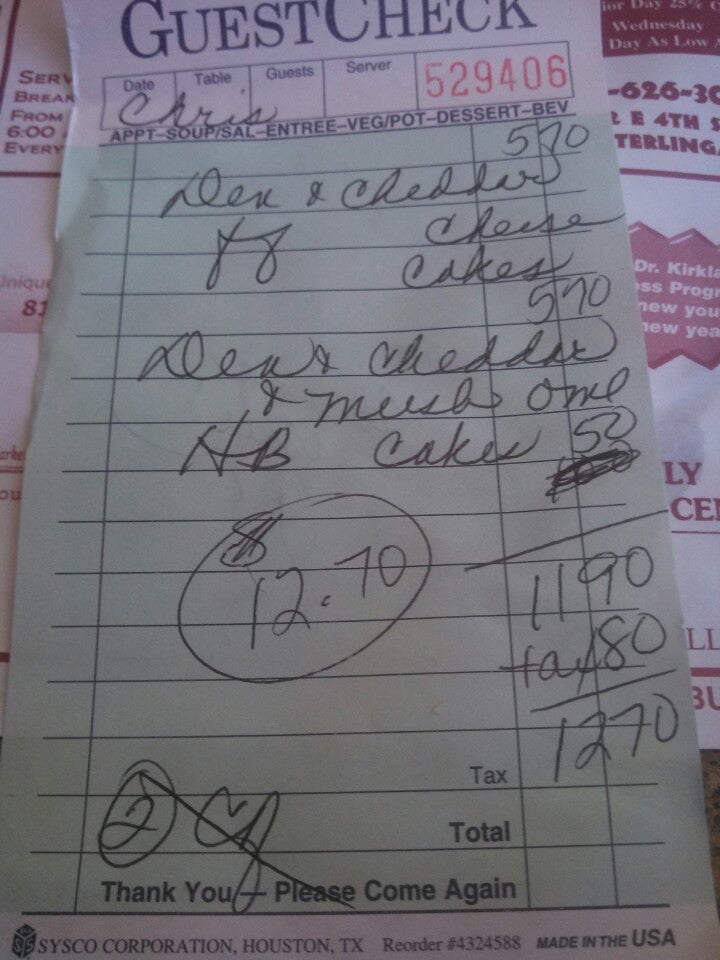 GUESTCHECK
Date Table Guests Server
529406
Chris
APPT–SOUP/SAL–ENTREE–VEG/POT–DESSERT–BEV
570
Den & Cheddar
Cheese
Cakes
570
Den & Cheddar
& Mush Ome
HB Cakes 50
$ 12.70
1190
tax 80
1270
Tax
2
Total
Thank You — Please Come Again
SYSCO CORPORATION, HOUSTON, TX Reorder #4324588 MADE IN THE USA
Day 25%
Wednesday
Day As Low
-626-30
E 4TH S
TERLING
Dr. Kirkla
ss Progr
new you
new yea
LY
-CE
LL
BU
SERV
BREAK
FROM
6:00
EVERY
Unique
81